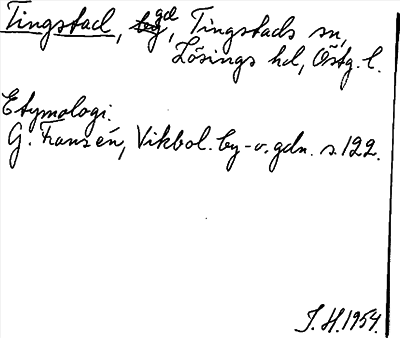 Tingstad, gd, Tingstads sn,
Lösings hd, Östg. l.
Etymologi.
G. Franzén, Vikbol. by- o. gdn. s. 122.
I. H. 1954.